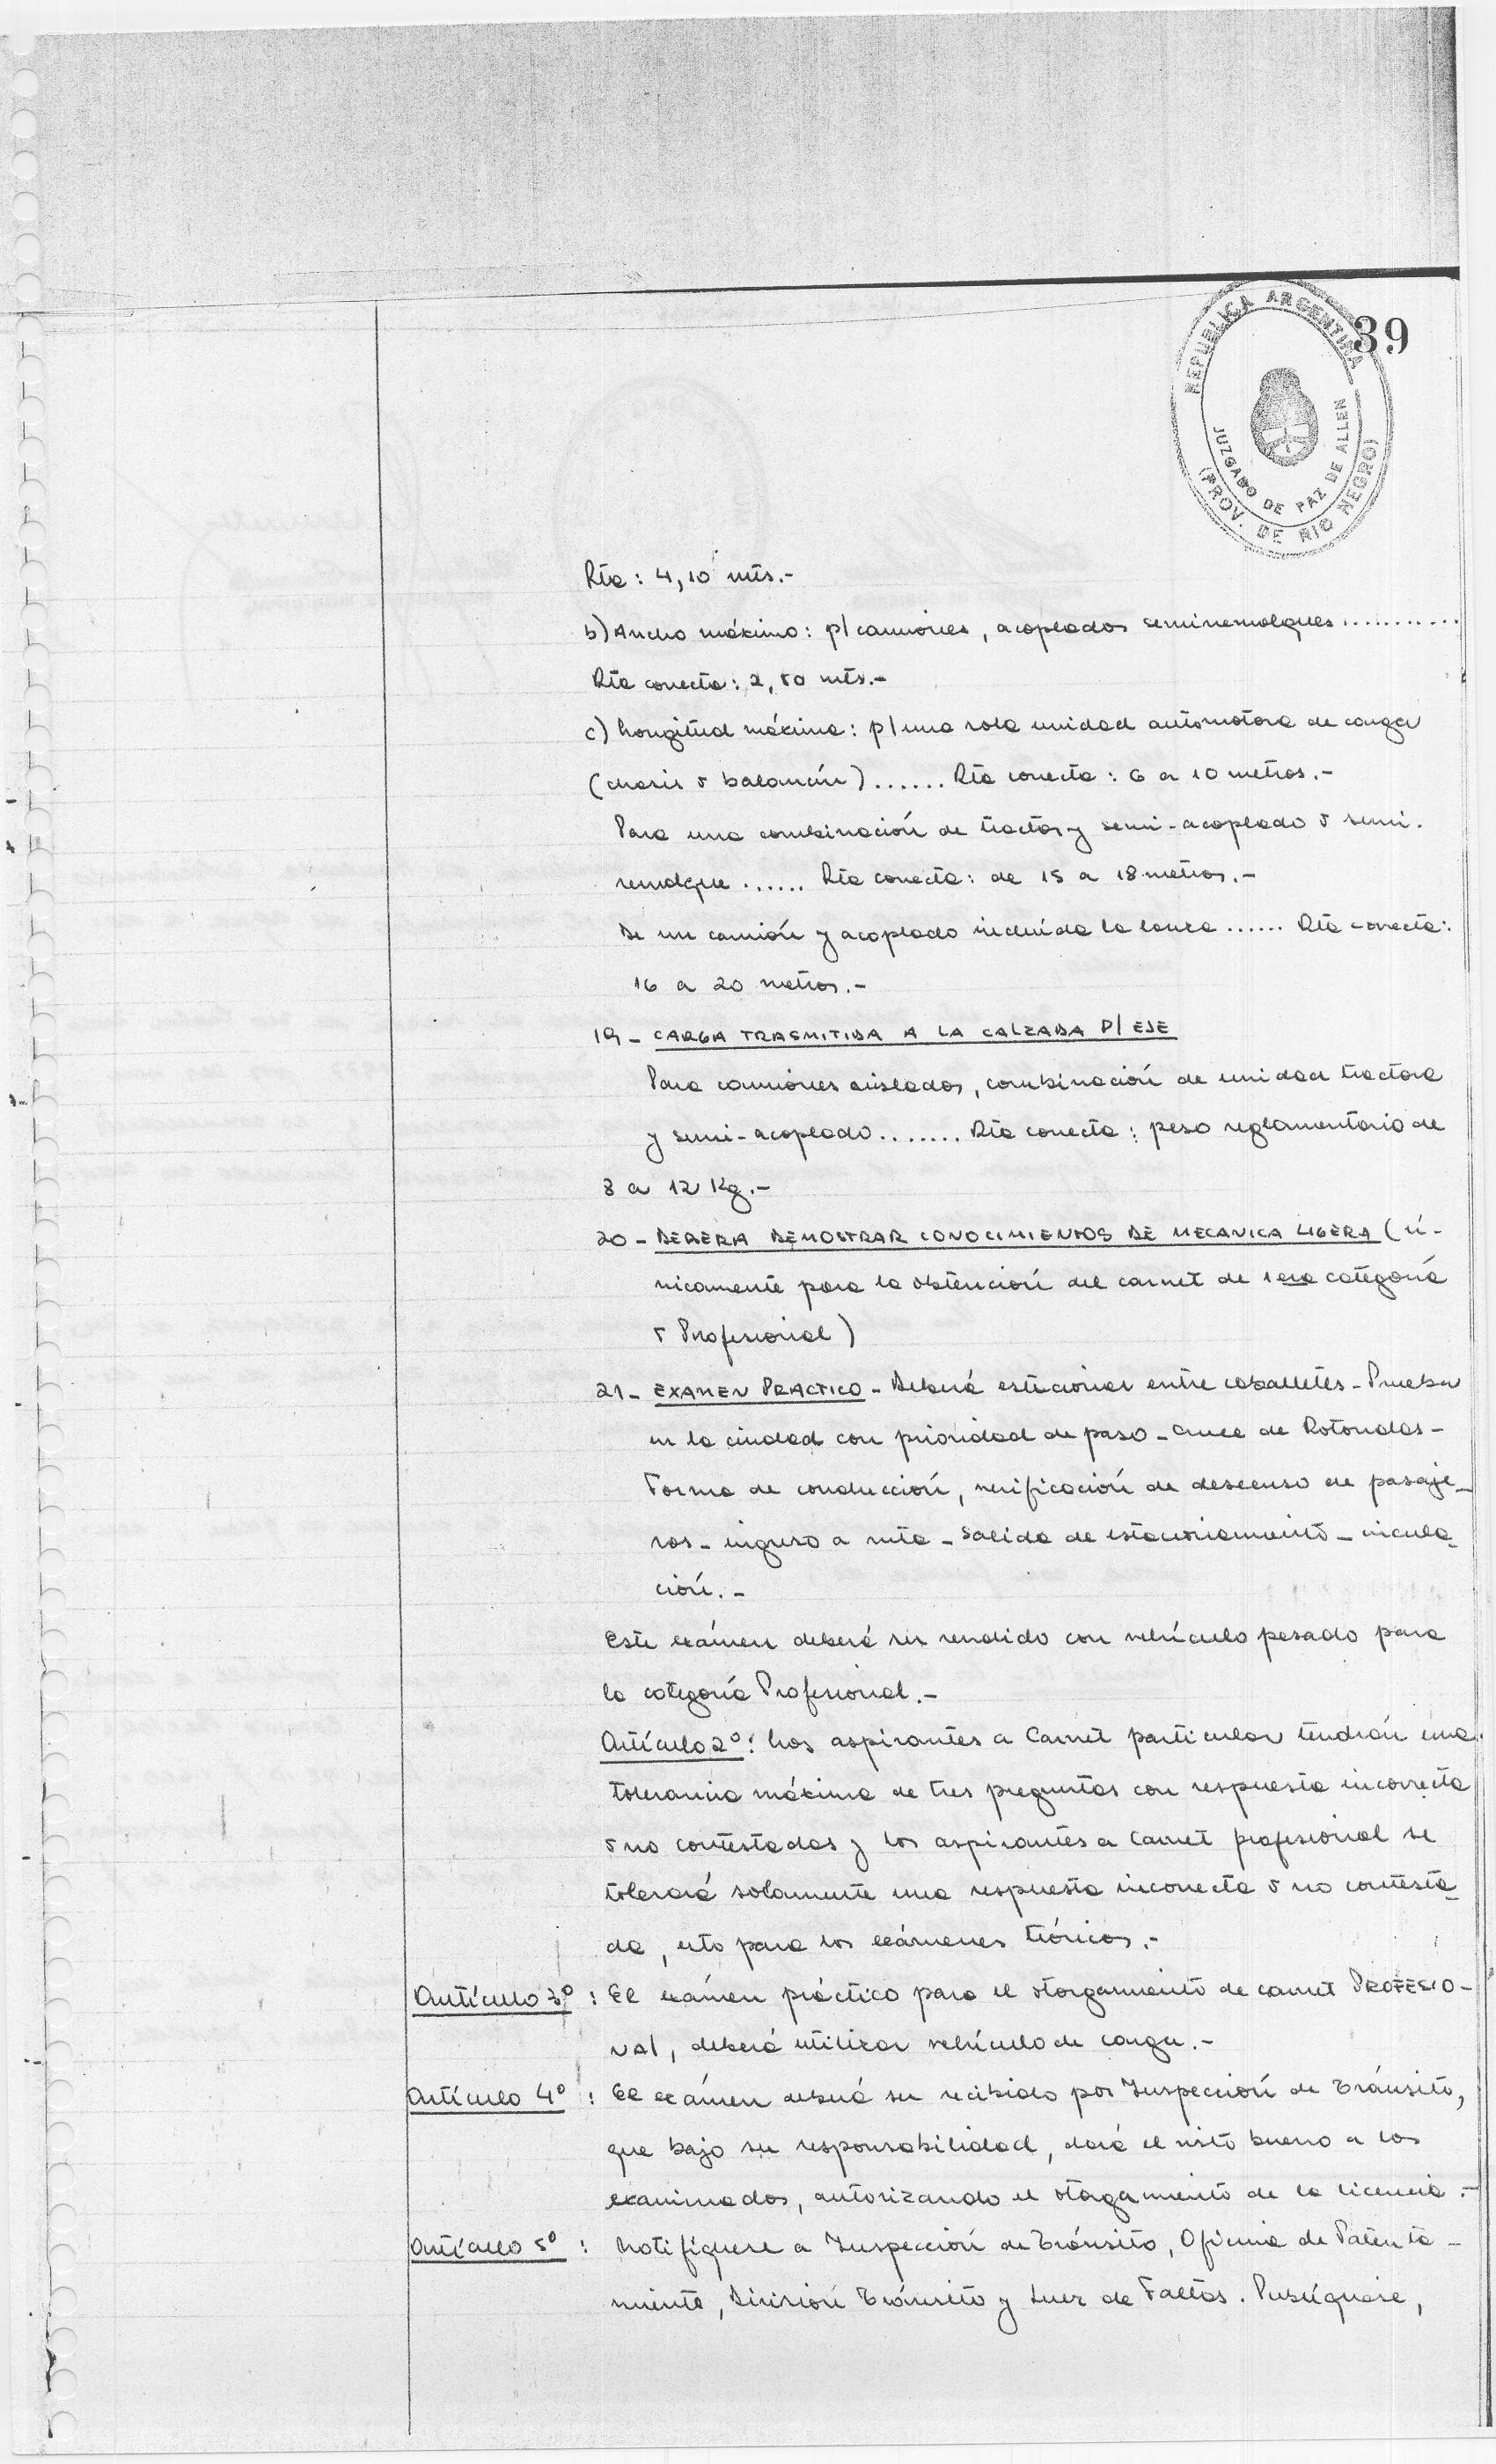 39
REPUBLICA ARGENTINA
JUZGADO DE PAZ DE ALLEN
(PROV. DE RIO NEGRO)
Rta: 4,10 mts.-
b) Ancho máximo: p/camiones, acoplados semirremolques...........
Rta correcta: 2,50 mts.-
c) Longitud máxima: p/una sola unidad automotora de carga
(chasis ó balancín)...... Rta correcta: 6 a 10 metros.-
Para una combinación de tractor y semi-acoplado ó semi.
remolque...... Rta correcta: de 15 a 18 metros.-
De un camión y acoplado incluída la lanza...... Rta correcta:
16 a 20 metros.-
19- CARGA TRASMITIDA A LA CALZADA P/ EJE
Para camiones aislados, combinación de unidad tractora
y semi-acoplado....... Rta correcta: peso reglamentario de
8 a 12 Kg.-
20- DEBERA DEMOSTRAR CONOCIMIENTOS DE MECANICA LIGERA (ú-
nicamente para la obtención del carnet de 1era categoría
ó Profesional)
21- EXAMEN PRACTICO - Deberá estacionar entre caballetes - Prueba
en la ciudad con prioridad de paso - Cruce de Rotondas -
Forma de conducción, verificación de descenso de pasaje-
ros - ingreso a ruta - Salida de estacionamiento -
ción.-
Este exámen deberá ser rendido con vehículo pesado para
la categoría Profesional.-
Artículo 2º: Los aspirantes a Carnet particular tendrán una
tolerancia máxima de tres preguntas con respuesta incorrecta
ó no contestadas y los aspirantes a Carnet profesional se
tolerará solamente una respuesta incorrecta ó no contesta-
da, esto para los exámenes teóricos.-
Artículo 3º: El exámen práctico para el otorgamiento de carnet PROFESIO-
NAL, deberá utilizar vehículo de carga.-
Artículo 4º: El exámen deberá ser recibido por Inspección de Tránsito,
que bajo su responsabilidad, dará el visto bueno a los
examinados, autorizando el otorgamiento de la licencia.-
Artículo 5º: Notifíquese a Inspección de Tránsito, Oficina de Patenta-
miento, División Tránsito y Juez de Faltas. Publíquese,